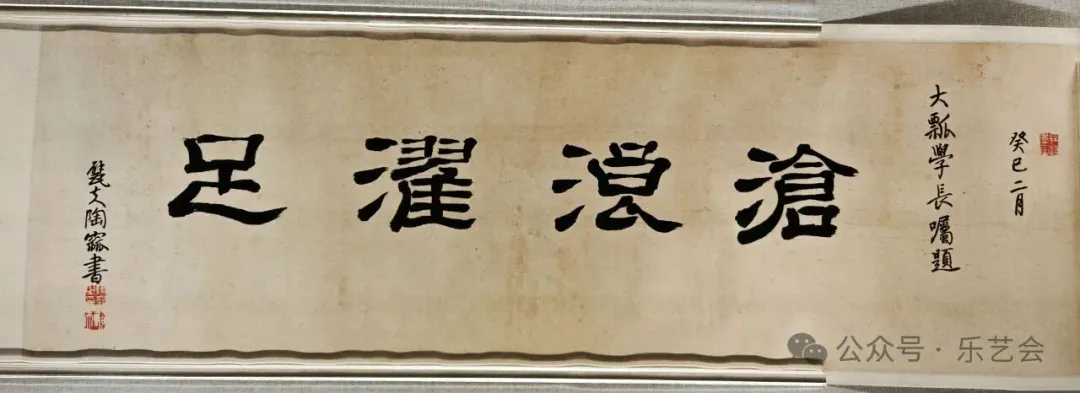 癸巳二月
大瓢學長囑題
滄浪濯足
陶窳書
公众号·乐艺会